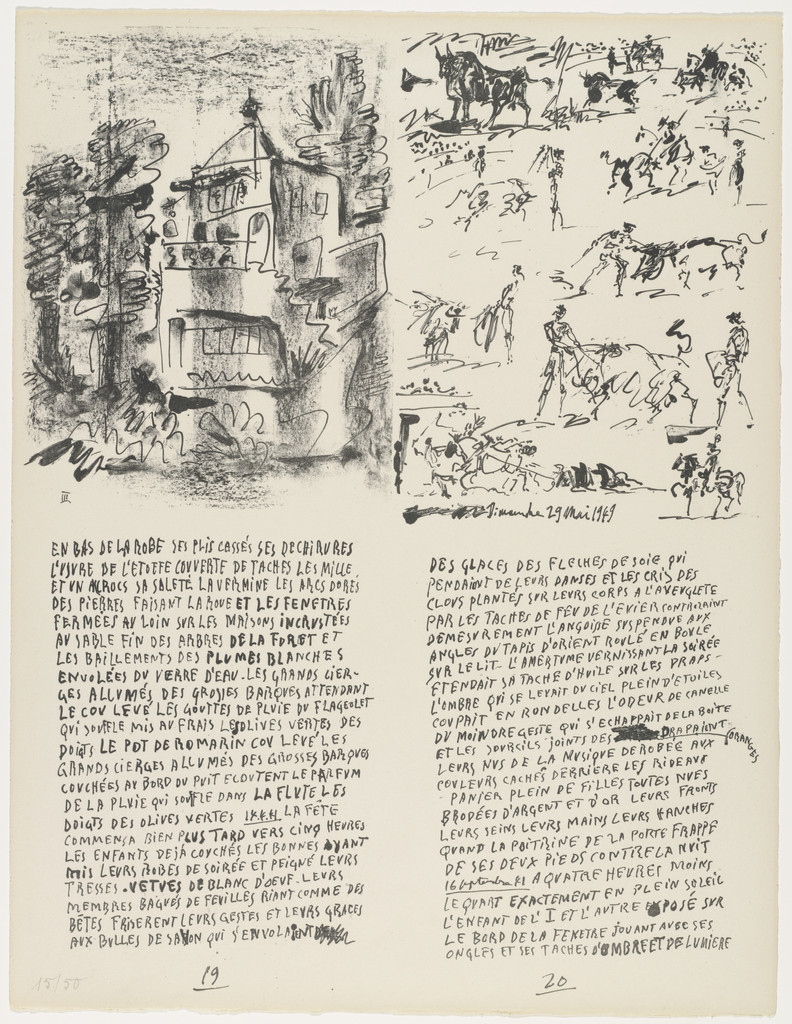 III
Dimanche 29 Mai 1949
EN BAS DE LA ROBE SES PLIS CASSÉS SES DECHIRURES
L'USURE DE L'ETOFFE COUVERTE DE TACHES LES MILLE
ET UN ACCROCS SA SALETÉ LA VERMINE LES ARCS DORÉS
DES PIERRES FAISANT LA ROUE ET LES FENETRES
FERMÉES AU LOIN SUR LES MAISONS INCRUSTÉES
AU SABLE FIN DES ARBRES DE LA FORET ET
LES BAILLEMENTS DES PLUMES BLANCHES
ENVOLÉES DU VERRE D'EAU. LES GRANDS CIER-
GES ALLUMÉS DES GROSSES BARQUES ATTENDANT
LE COU LEVÉ LES GOUTTES DE PLUIE DU FLAGEOLET
QUI SOUFFLE MIS AU FRAIS LES OLIVES VERTES DES
DOIGTS LE POT DE ROMARIN COU LEVÉ LES
GRANDS CIERGES ALLUMÉS DES GROSSES BARQUES
COUCHÉES AU BORD DU PUIT ECOUTENT LE PARFUM
DE LA PLUIE QUI SOUFFLE DANS LA FLUTE LES
DOIGTS DES OLIVES VERTES 18.4.41 LA FÊTE
COMMENSA BIEN PLUS TARD VERS CINQ HEURES
LES ENFANTS DEJÀ COUCHÉS LES BONNES AYANT
MIS LEURS ROBES DE SOIRÉE ET PEIGNÉ LEURS
TRESSES. VETUES DE BLANC D'OEUF. LEURS
MEMBRES BAGUÉS DE FEUILLES RIANT COMME DES
BÊTES FRISERENT LEURS GESTES ET LEURS GRACES
AUX BULLES DE SAVON QUI S'ENVOLAIENT
19
DES GLACES DES FLECHES DE SOIE QUI
PENDAINT DE LEURS DANSES ET LES CRIS DES
CLOUS PLANTÉS SUR LEURS CORPS A L'AVEUGLETE
PAR LES TACHES DE FEU DE L'EVIER CONTRAINT
DEMESUREMENT L'ANGOISE SUSPENDUE AUX
ANGLES DU TAPIS D'ORIENT ROULÉ EN BOULE
SUR LE LIT. L'AMERTUME VERNISSANT LA SOIRÉE
ETENDAIT SA TACHE D'HUILE SUR LES DRAPS -
L'OMBRE QUI SE LEVAIT DU CIEL PLEIN D'ETOILES
COUPAIT EN RONDELLES L'ODEUR DE CANELLE
DU MOINDRE GESTE QUI S'ECHAPPAIT DE LA BOITE
ET LES SOURCILS JOINTS DES ORANGES DRAPAIENT
LEURS NUS DE LA MUSIQUE DEROBÉE AUX
COULEURS CACHÉS DERRIÈRE LES RIDEAUX
- PANIER PLEIN DE FILLES TOUTES NUES
BRODÉES D'ARGENT ET D'OR LEURS FRONTS
LEURS SEINS LEURS MAINS LEURS HANCHES
QUAND LA POITRINE DE LA PORTE FRAPPE
DE SES DEUX PIEDS CONTRE LA NUIT
16 septembre 41 A QUATRE HEURES MOINS
LE QUART EXACTEMENT EN PLEIN SOLEIL
L'ENFANT DE L'I ET L'AUTRE EXPOSÉ SUR
LE BORD DE LA FENETRE JOUANT AVEC SES
ONGLES ET SES TACHES D'OMBRE ET DE LUMIERE
20
15/50